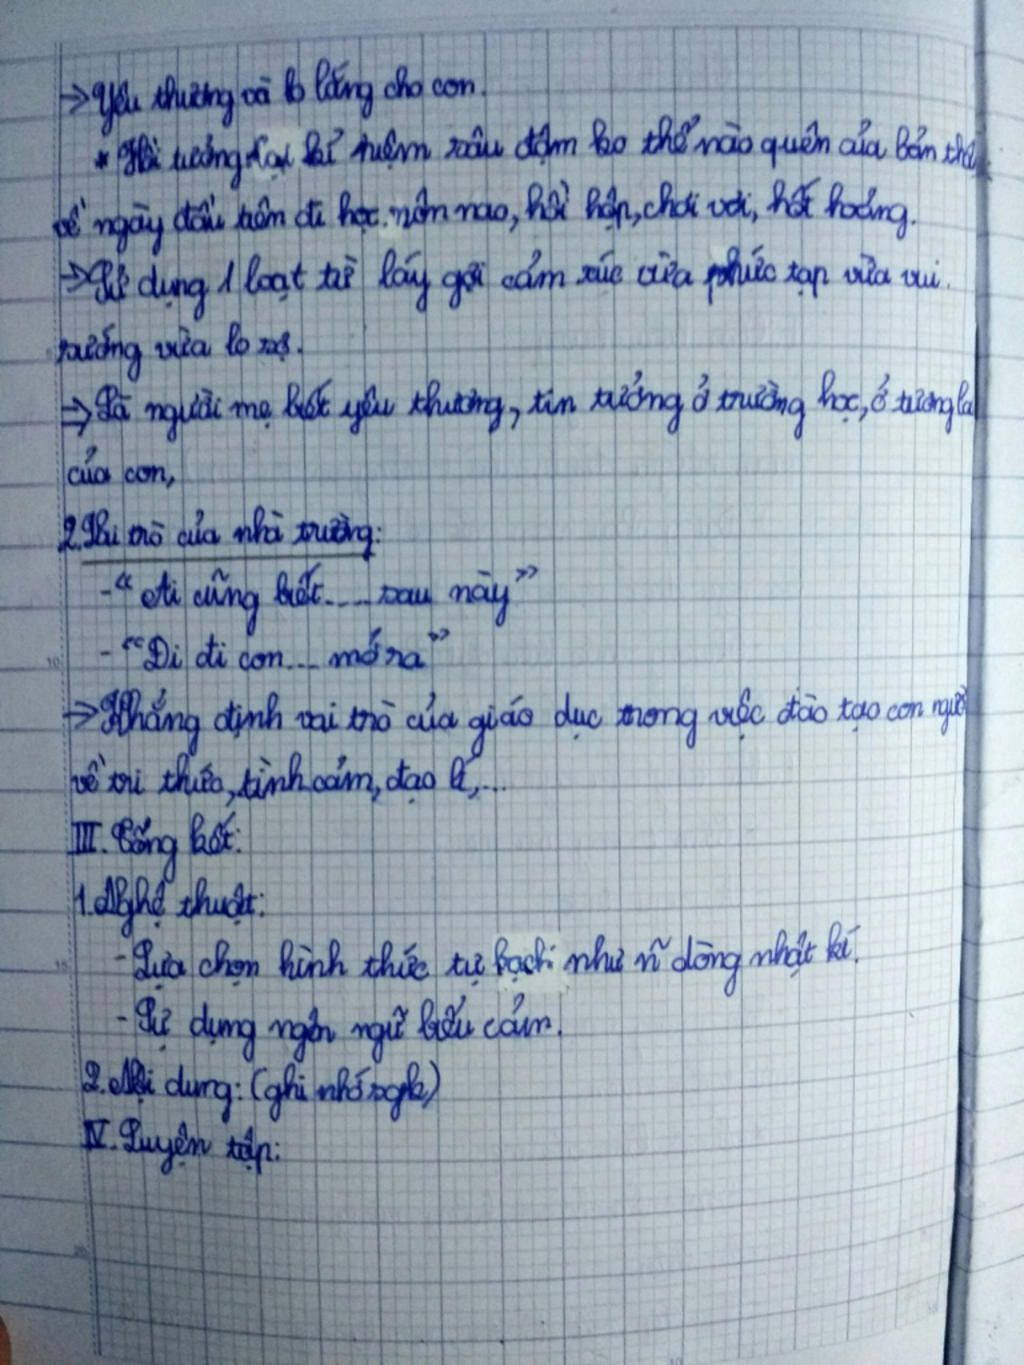 → Yêu thương và lo lắng cho con.
* Hồi tưởng lại kỉ niệm sâu đậm ko thể nào quên của bản thâ
về ngày đầu tiên đi học: nôn nao, hồi hộp, chơi vơi, hốt hoảng.
→ Sử dụng 1 loạt từ láy gợi cảm xúc vừa phức tạp vừa vui
sướng vừa lo sợ.
⇒ Là người mẹ biết yêu thương, tin tưởng ở trường học, ở tương la
của con,
2. Vai trò của nhà trường:
- “Ai cũng biết.... sau này”
- “Đi đi con.... mở ra”
→ Khẳng định vai trò của giáo dục trong việc đào tạo con người
về tri thức, tình cảm, đạo lí,...
III. Tổng kết:
1. Nghệ thuật:
- Lựa chọn hình thức tự bạch như ~ dòng nhật kí.
- Sử dụng ngôn ngữ biểu cảm.
2. Nội dung: (ghi nhớ sgk)
IV. Luyện tập: